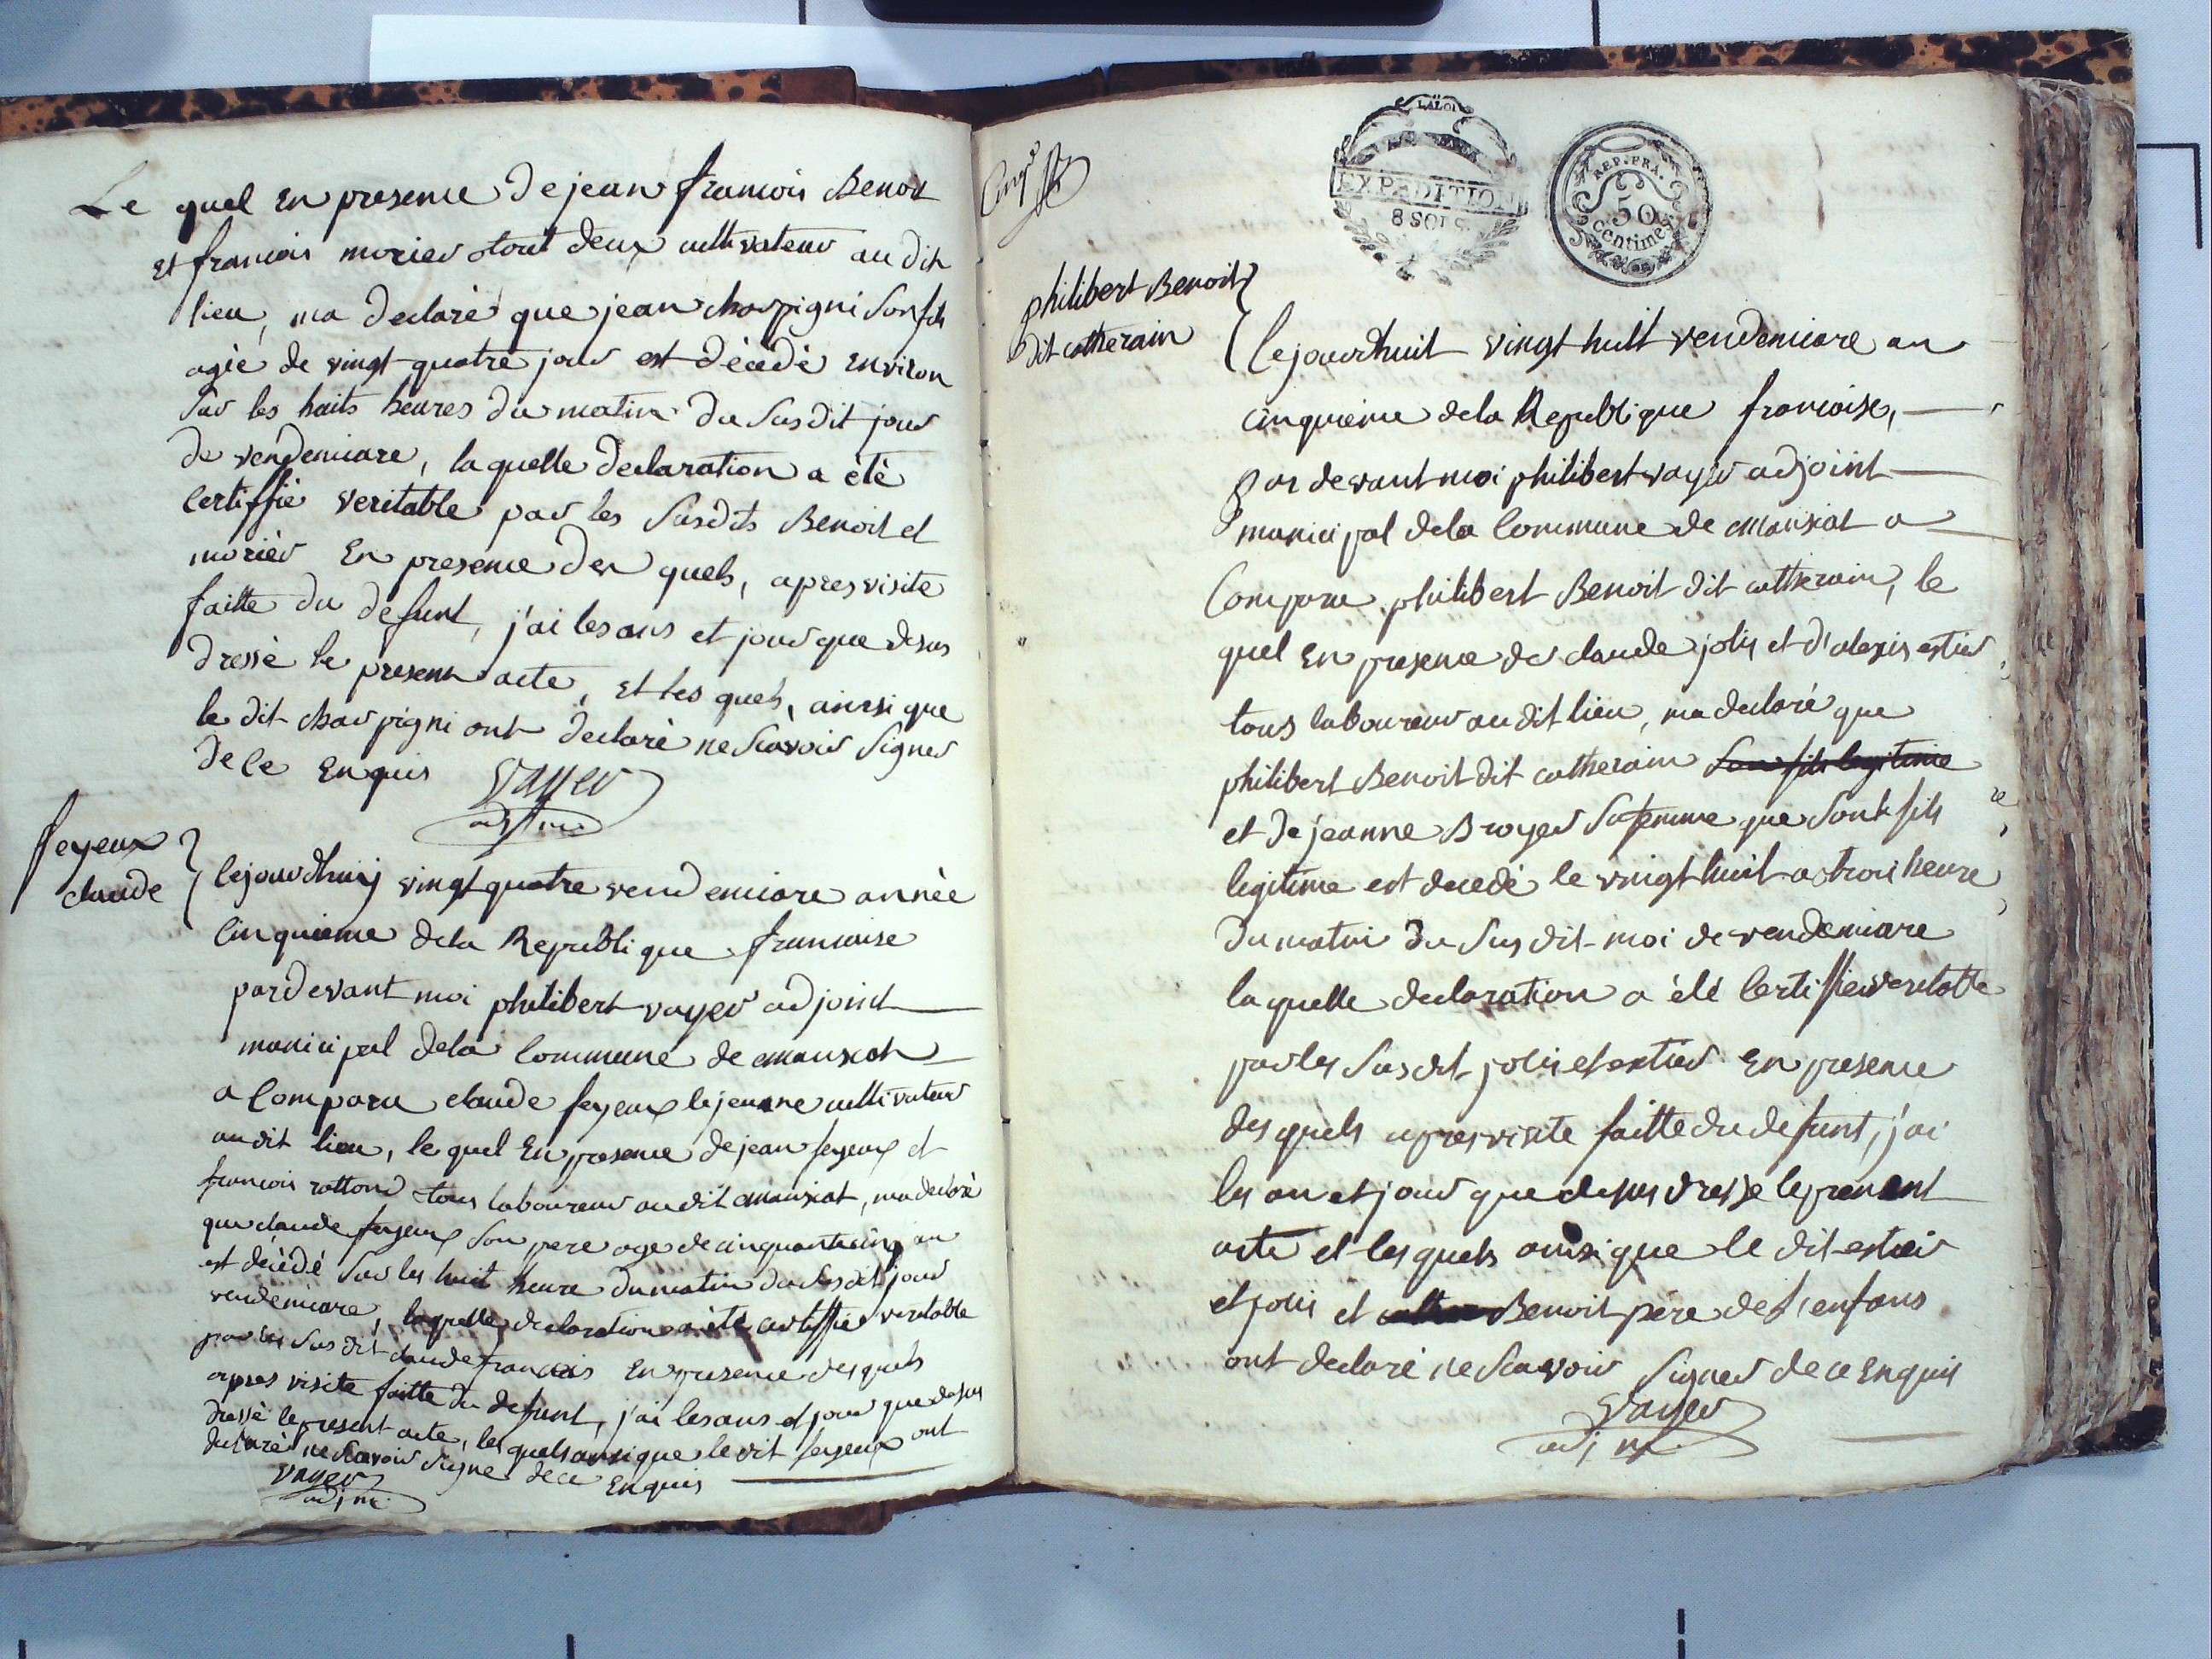 Le quel En presence de jean francois Benoit
et francois morier tout deux cultivateur au dit
lieu, ma declaré que jean charpigni son fils
agée de vingt quatre jour est décédé environ
sur les huits heures du matin du susdit jour
de vendemiare, la quelle declaration a été
certiffié veritable par les susdits Benoit et
moriér En presence des quels, apres visite
faitte du defunt, j'ai les ans et jour que desus
dressé le present acte, et les quels, ainsi que
le dit charpigni ont declaré ne scavoir signer
de ce enquis
Vayer
adj m
feyeux
claude
lejourdhuij vingt quatre vendemiare année
cinquieme dela Republique francaise
pardevant moi philibert vayer adjoint
municipal dela commune de manziat
a comparu claude feyeux le jeune cultivateur
audit lieu, le quel En presence de jean feyeux et
francois rottond tous laboureur audit manziat, ma declaré
que claude feyeux son pere age de cinquante cinq an
est décédé sur les huit heure du matin du susdit jour
vendemiare, laquelle declaration a été certiffie veritable
par les susdit claude francois En presence des quels
apres visite faitte du defunt, j'ai les ans et jour que desus
dressé le present acte, les quels ainsi que le dit feyeux ont
declaré ne scavoir signe de ce Enquis
Vayer
adj m
Cinq
LA LOI
EXPEDITION
8 SOLS
REP. FRA.
50
centimes
philibert Benoit
dit catherain
lejourdhuit vingt huit vendemiare an
cinquieme dela Republique francoise,
Par devant moi philibert vayer adjoint
municipal dela commune de manziat a
comparu philibert Benoit dit catherain, le
quel En presence de claude joly et d'alexis estier
tous laboureur audit lieu, ma declaré que
philibert Benoit dit catherain son fils legitime
et de jeanne Broyer sa femme que sont fils
legitime est decedé le vingt huit a trois heure
du matin du susdit moi de vendemiare
laquelle declaration a été certiffiée veritable
par les susdit jolis et estier En presence
des quels apres visite faitte du defunt, j'ai
les an et jour que desus dresse le present
acte et les quels ainsi que le dit estier
et jolis et Benoit père de l'enfans
ont declaré ne scavoir signer de ce Enquis
Vayer
adj m